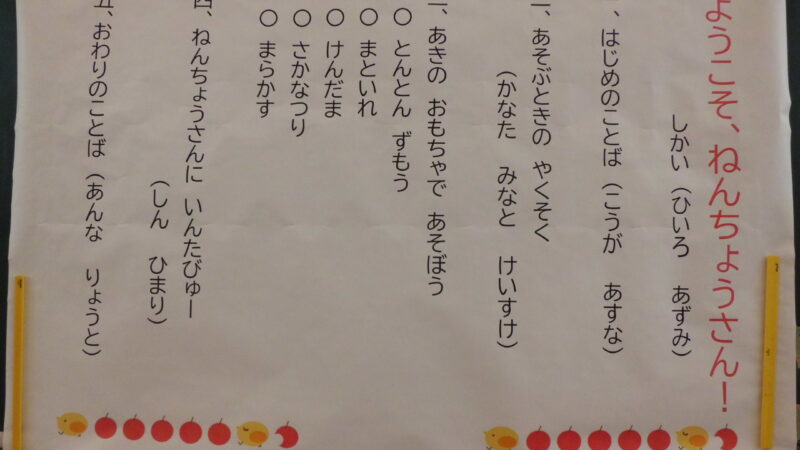 ようこそ、ねんちょうさん！
しかい（ひいろ　あずみ）
、はじめのことば（こうが　あすな）
、あそぶときの やくそく
（かなた　みなと　けいすけ）
、あきの おもちゃで あそぼう
○ とんとん ずもう
○ まといれ
○ けんだま
○ さかなつり
○ まらかす
四、ねんちょうさんに いんたびゅー
（しん　ひまり）
五、おわりのことば（あんな　りょうと）